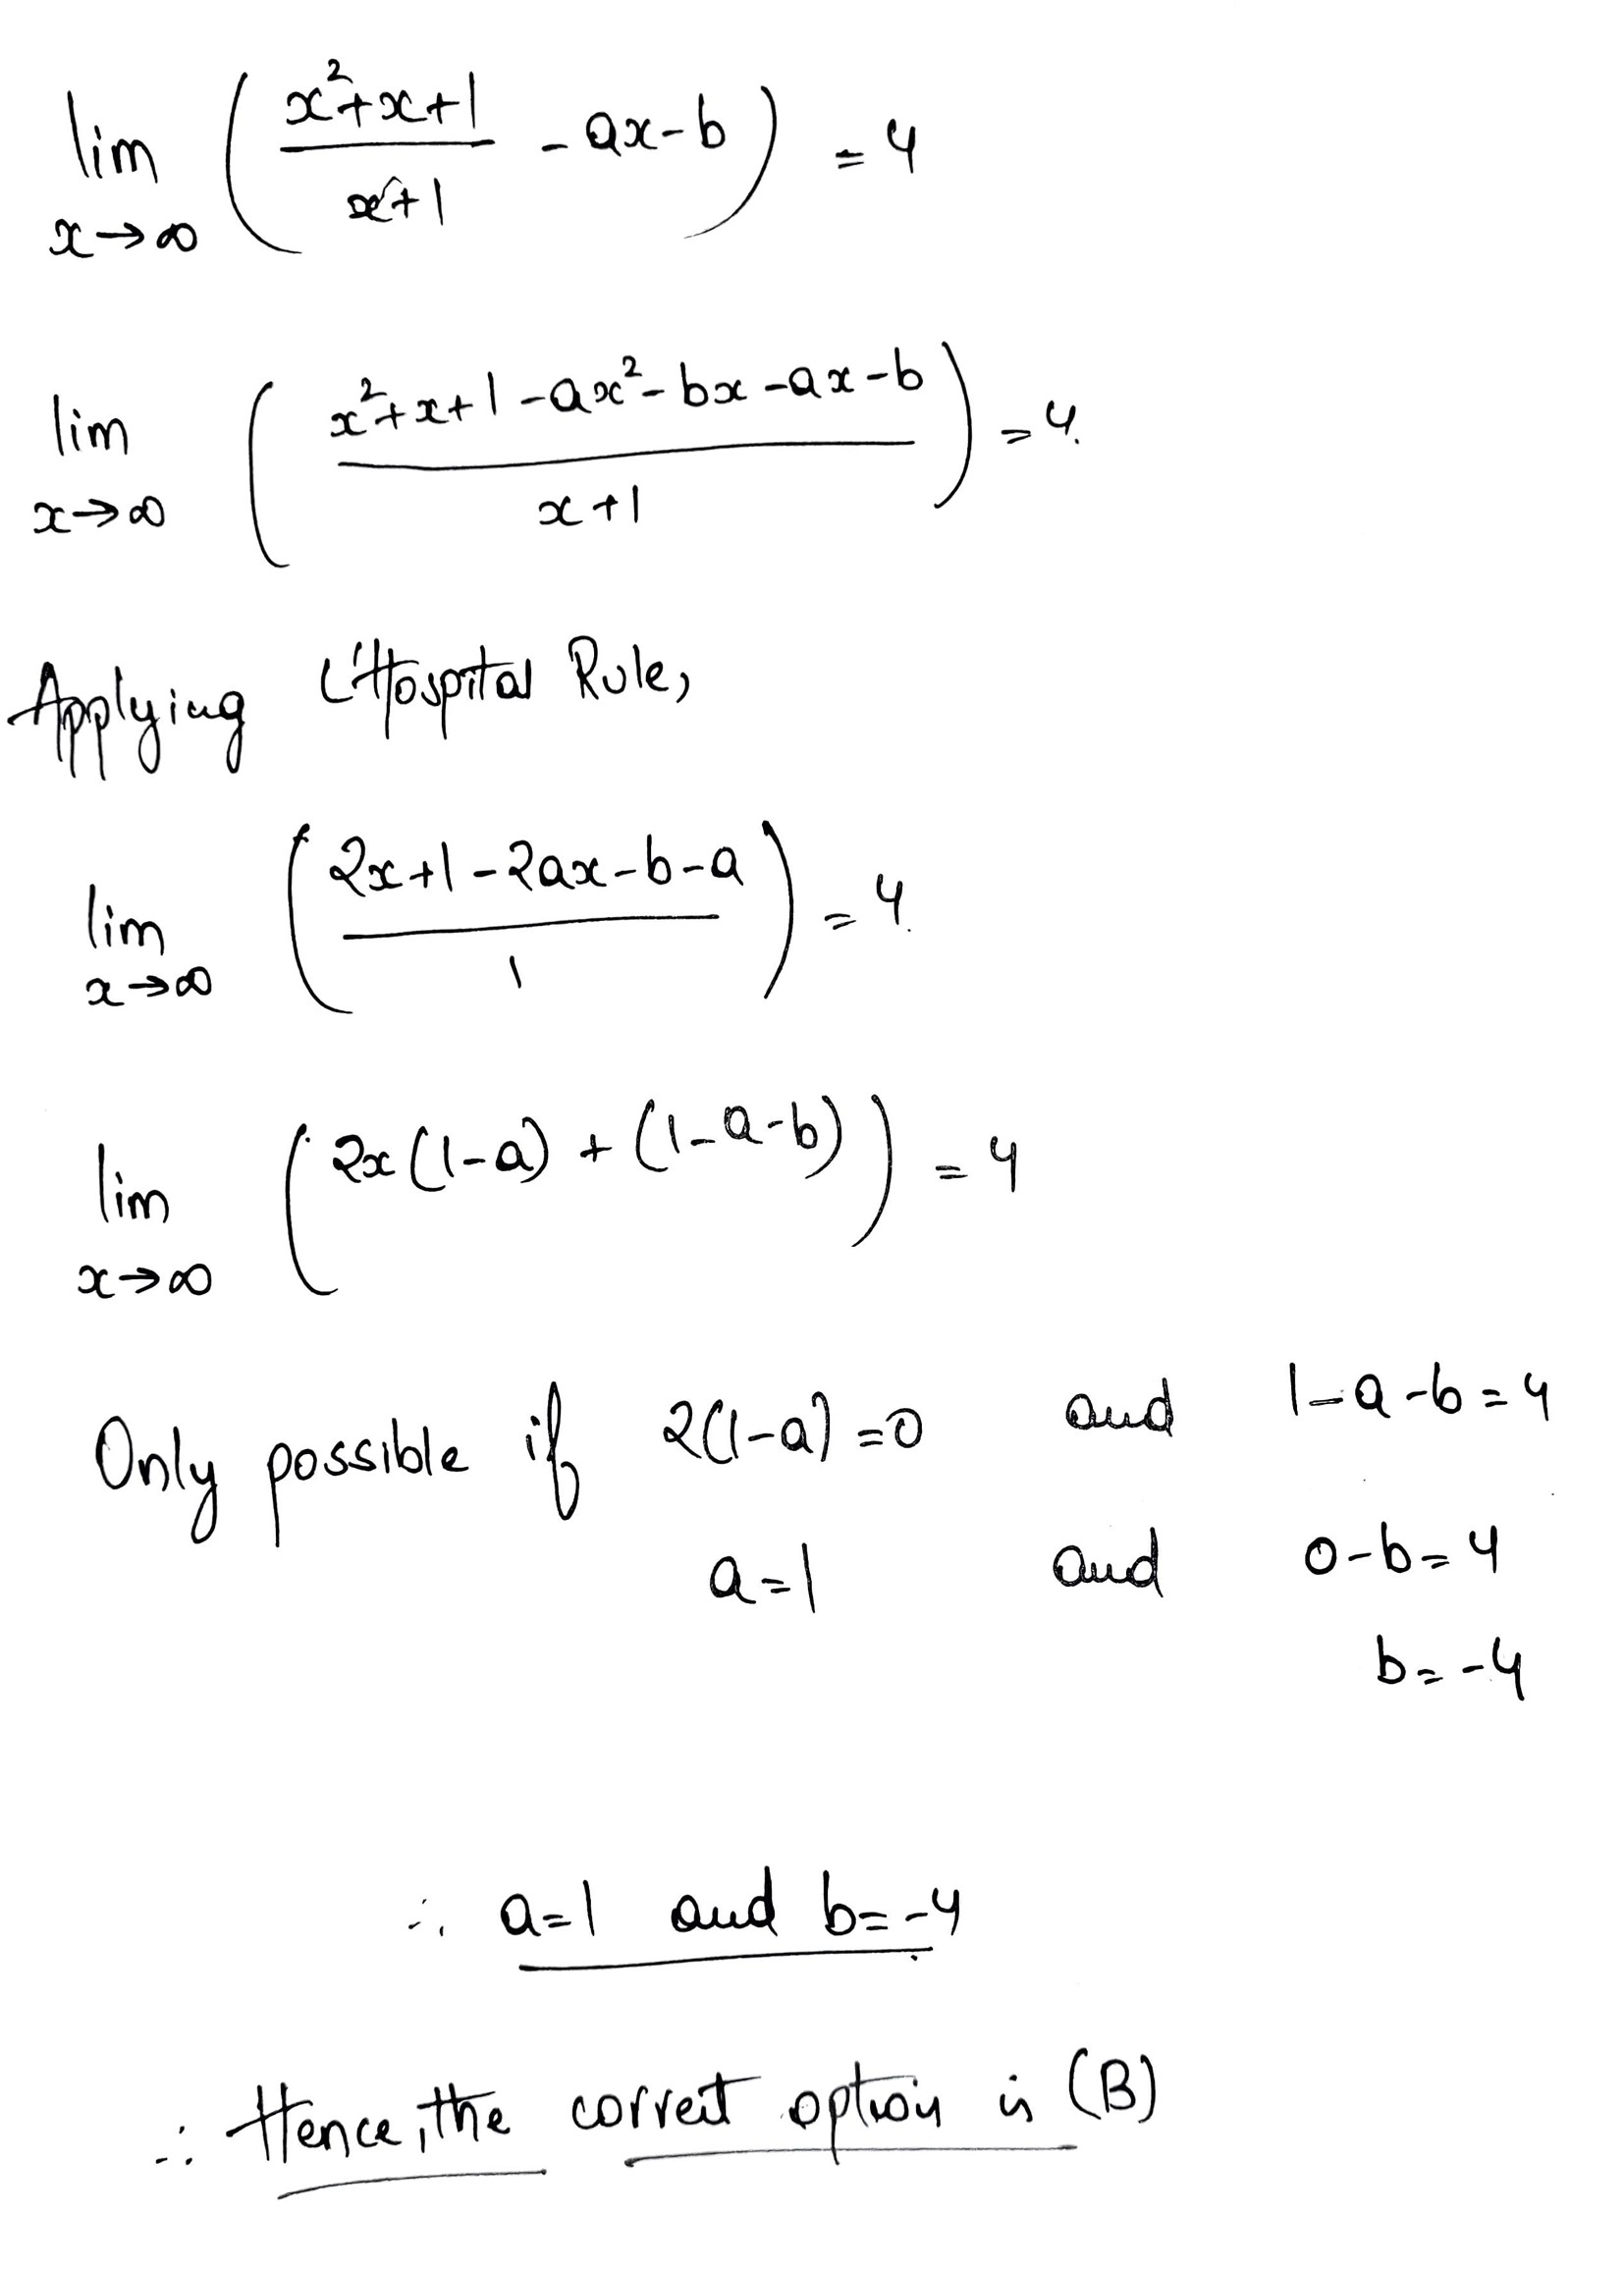 lim x→∞ ( (x²+x+1)/(x+1) - ax - b ) = 4
lim x→∞ ( (x²+x+1-ax²-bx-ax-b)/(x+1) ) = 4.
Applying L'Hospital Rule,
lim x→∞ ( (2x+1-2ax-b-a)/1 ) = 4.
lim x→∞ ( 2x(1-a) + (1-a-b) ) = 4
Only possible if 2(1-a)=0 and 1-a-b=4
a=1 and 0-b=4
b=-4
∴ a=1 and b=-4
∴ Hence, the correct option is (B)